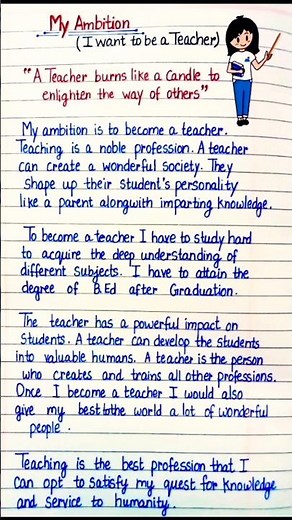 My Ambition
(I want to be a Teacher)
"A Teacher burns like a Candle to
enlighten the way of others"
My ambition is to become a teacher.
Teaching is a noble profession. A teacher
can create a wonderful society. They
shape up their student's personality
like a parent alongwith imparting knowledge.
To become a teacher I have to study hard
to acquire the deep understanding of
different subjects. I have to attain the
degree of B.Ed after Graduation.
The teacher has a powerful impact on
students. A teacher can develop the students
into valuable humans. A teacher is the person
who creates and trains all other professions.
Once I become a teacher I would also
give my best to the world a lot of wonderful
people".
Teaching is the best profession that I
can opt to satisfy my quest for knowledge
and service to humanity.